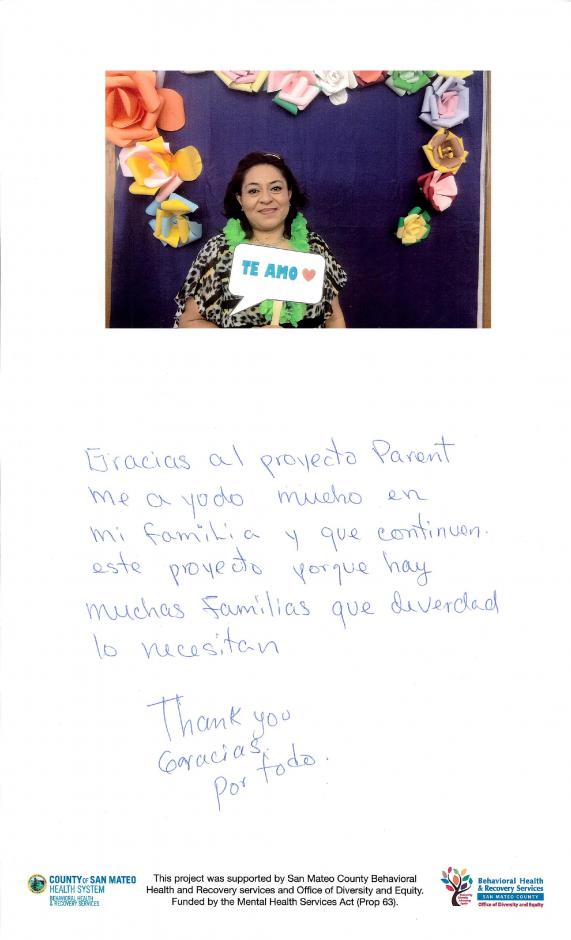 TE AMO
Gracias al proyecto Parent
me a yodo mucho en
mi familia y que continuen.
este proyecto porque hay
muchas familias que diverdad
lo necesitan
Thank you
Gracias.
por todo.
COUNTY OF SAN MATEO
HEALTH SYSTEM
BEHAVIORAL HEALTH
& RECOVERY SERVICES
This project was supported by San Mateo County Behavioral
Health and Recovery services and Office of Diversity and Equity.
Funded by the Mental Health Services Act (Prop 63).
Behavioral Health
& Recovery Services
SAN MATEO COUNTY
Office of Diversity and Equity